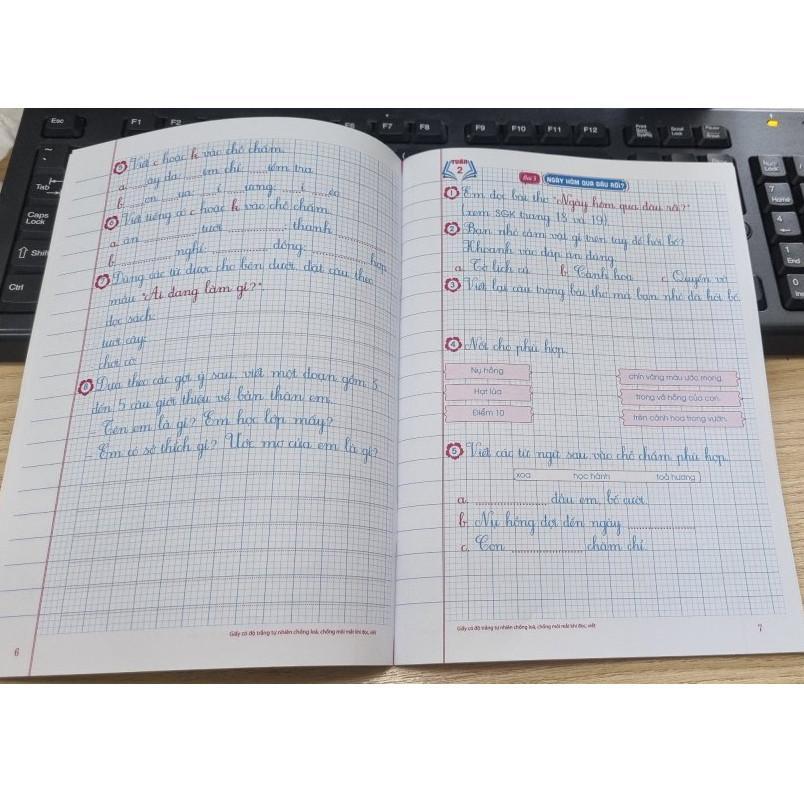 5 Viết c hoặc k vào chỗ chấm.
a. ....ay da; ....em chí; ....iểm tra
b. ....on ....ua; ....í ....iang; ....ì ....eo
6 Viết tiếng có c hoặc k vào chỗ chấm.
a. ăn ..........; tươi ..........; thanh ..........
b. .......... nghỉ; .......... đông; .......... hợp
7 Dùng các từ được cho bên dưới, đặt câu theo
mẫu "Ai đang làm gì?"
đọc sách:
tưới cây:
chơi cờ:
8 Dựa theo các gợi ý sau, viết một đoạn gồm 3
đến 5 câu giới thiệu về bản thân em.
- Tên em là gì? Em học lớp mấy?
- Em có sở thích gì? Ước mơ của em là gì?
Giấy có độ trắng tự nhiên chống loá, chống mỏi mắt khi đọc, viết
6
TUẦN
2
Bài 3 NGÀY HÔM QUA ĐÂU RỒI?
1 Em đọc bài thơ "Ngày hôm qua đâu rồi?"
(xem SGK trang 18 và 19)
2 Bạn nhỏ cầm vật gì trên tay để hỏi bố?
Khoanh vào đáp án đúng.
a. Tờ lịch cũ b. Cành hoa c. Quyển vở
3 Viết lại câu trong bài thơ mà bạn nhỏ đã hỏi bố.
4 Nối cho phù hợp.
Nụ hồng
Hạt lúa
Điểm 10
chín vàng màu ước mong.
trong vở hồng của con.
trên cành hoa trong vườn.
5 Viết các từ ngữ sau vào chỗ chấm phù hợp.
xoa học hành toả hương
a. .................. đầu em, bố cười.
b. Nụ hồng đợi đến ngày ..................
c. Con .................. chăm chỉ.
Giấy có độ trắng tự nhiên chống loá, chống mỏi mắt khi đọc, viết
7
Esc
F1
F2
F6
F7
F8
F9
F10
F11
F12
Tab
Caps
Lock
Shift
Ctrl
7
Home
4
1
End
0